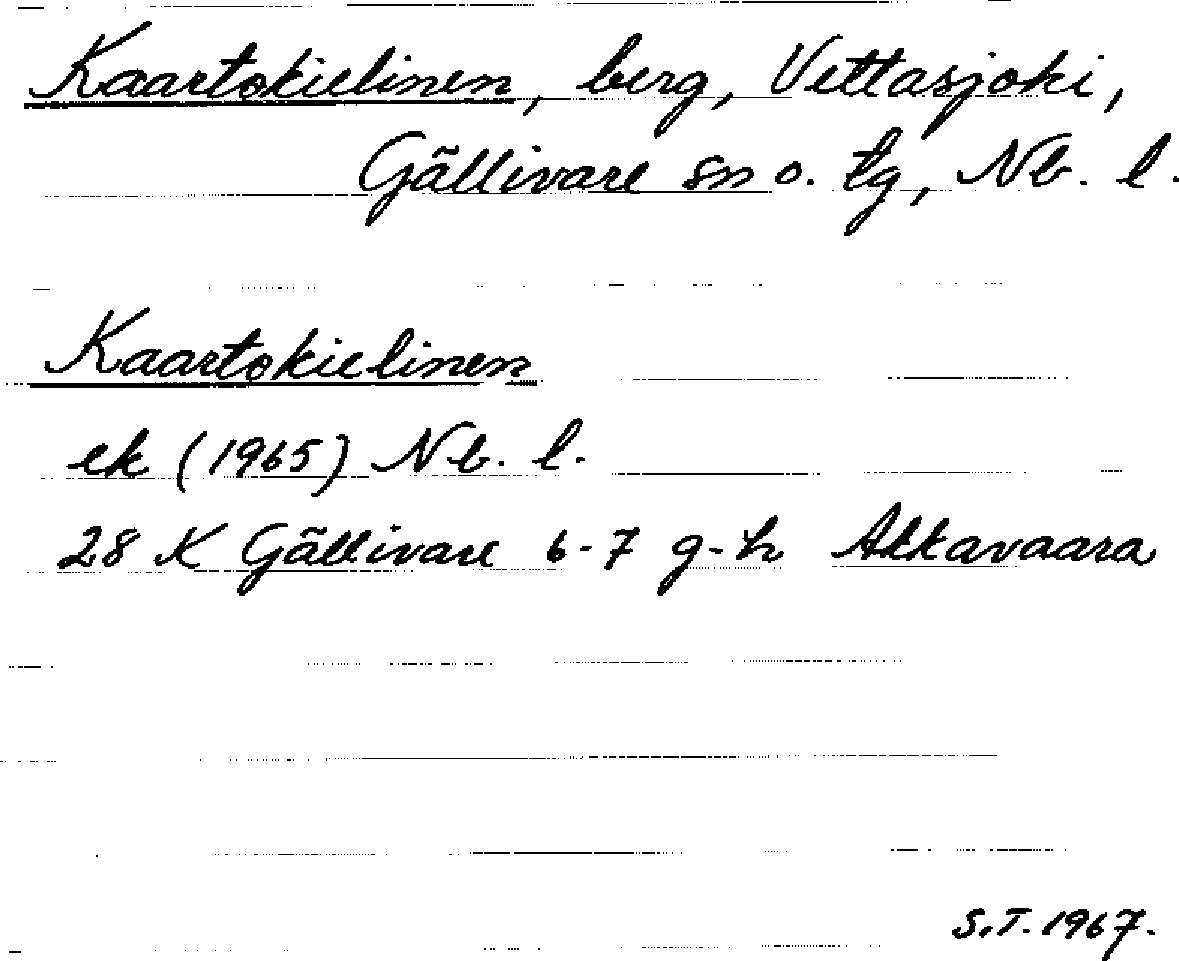 Kaartokielinen, berg, Vettasjoki,
Gällivare sn o. tg, Nb. l.
Kaartokielinen
ek (1965) Nb. l.
28 K Gällivare 6-7 g-h Akkavaara
S.T. 1967.